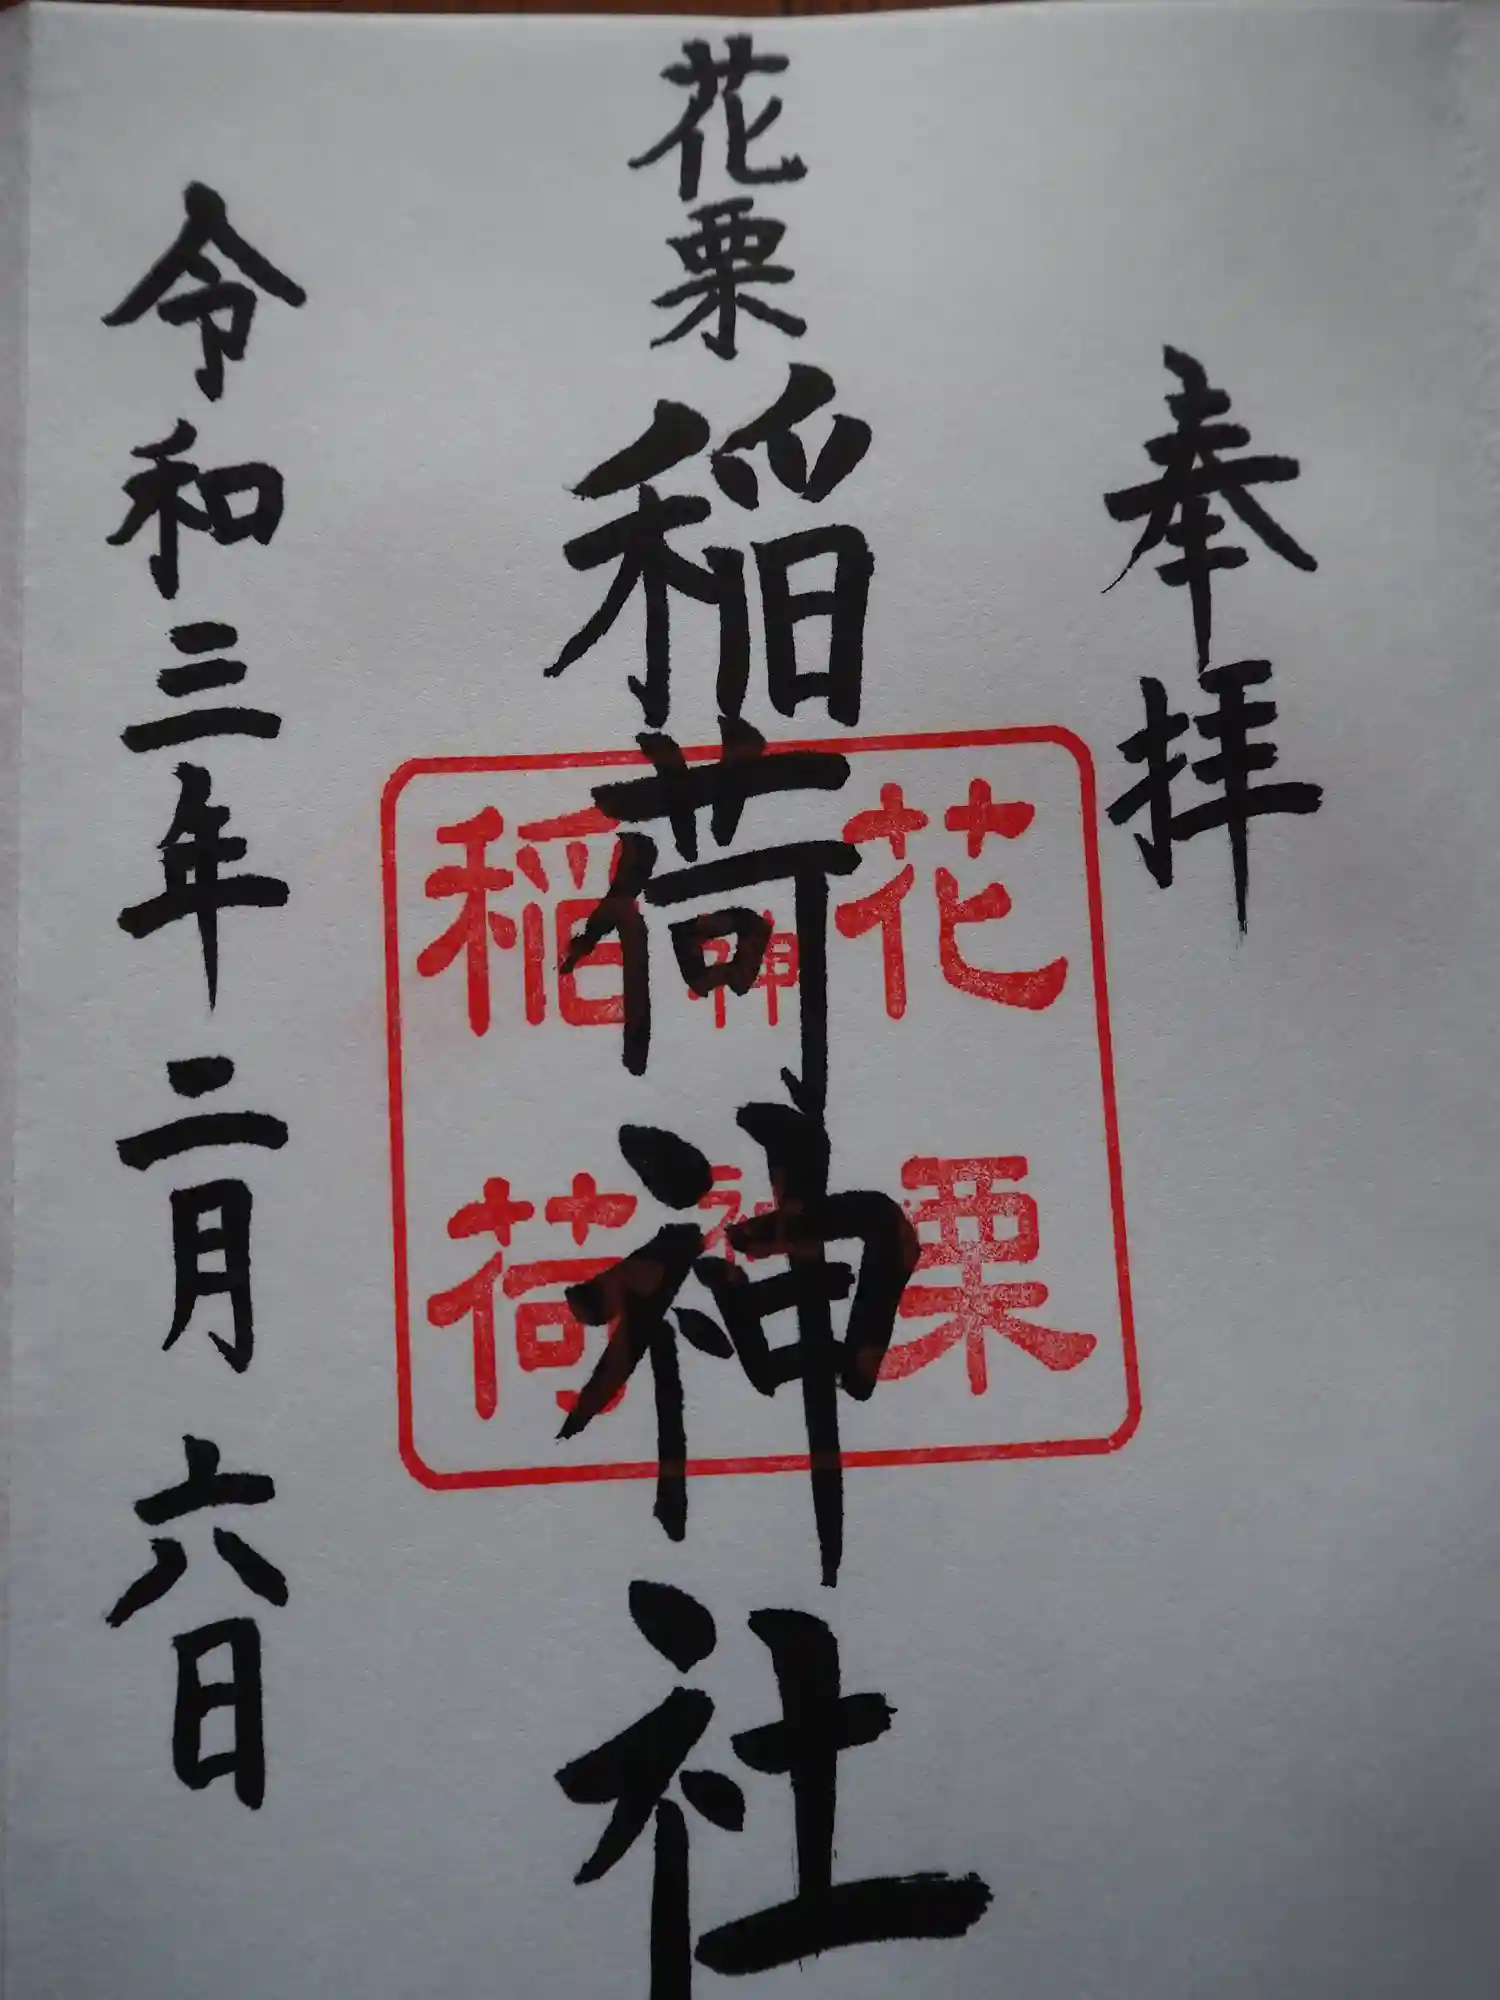 奉拝
花栗稲荷神社
令和三年二月六日
花栗
神社
稲荷